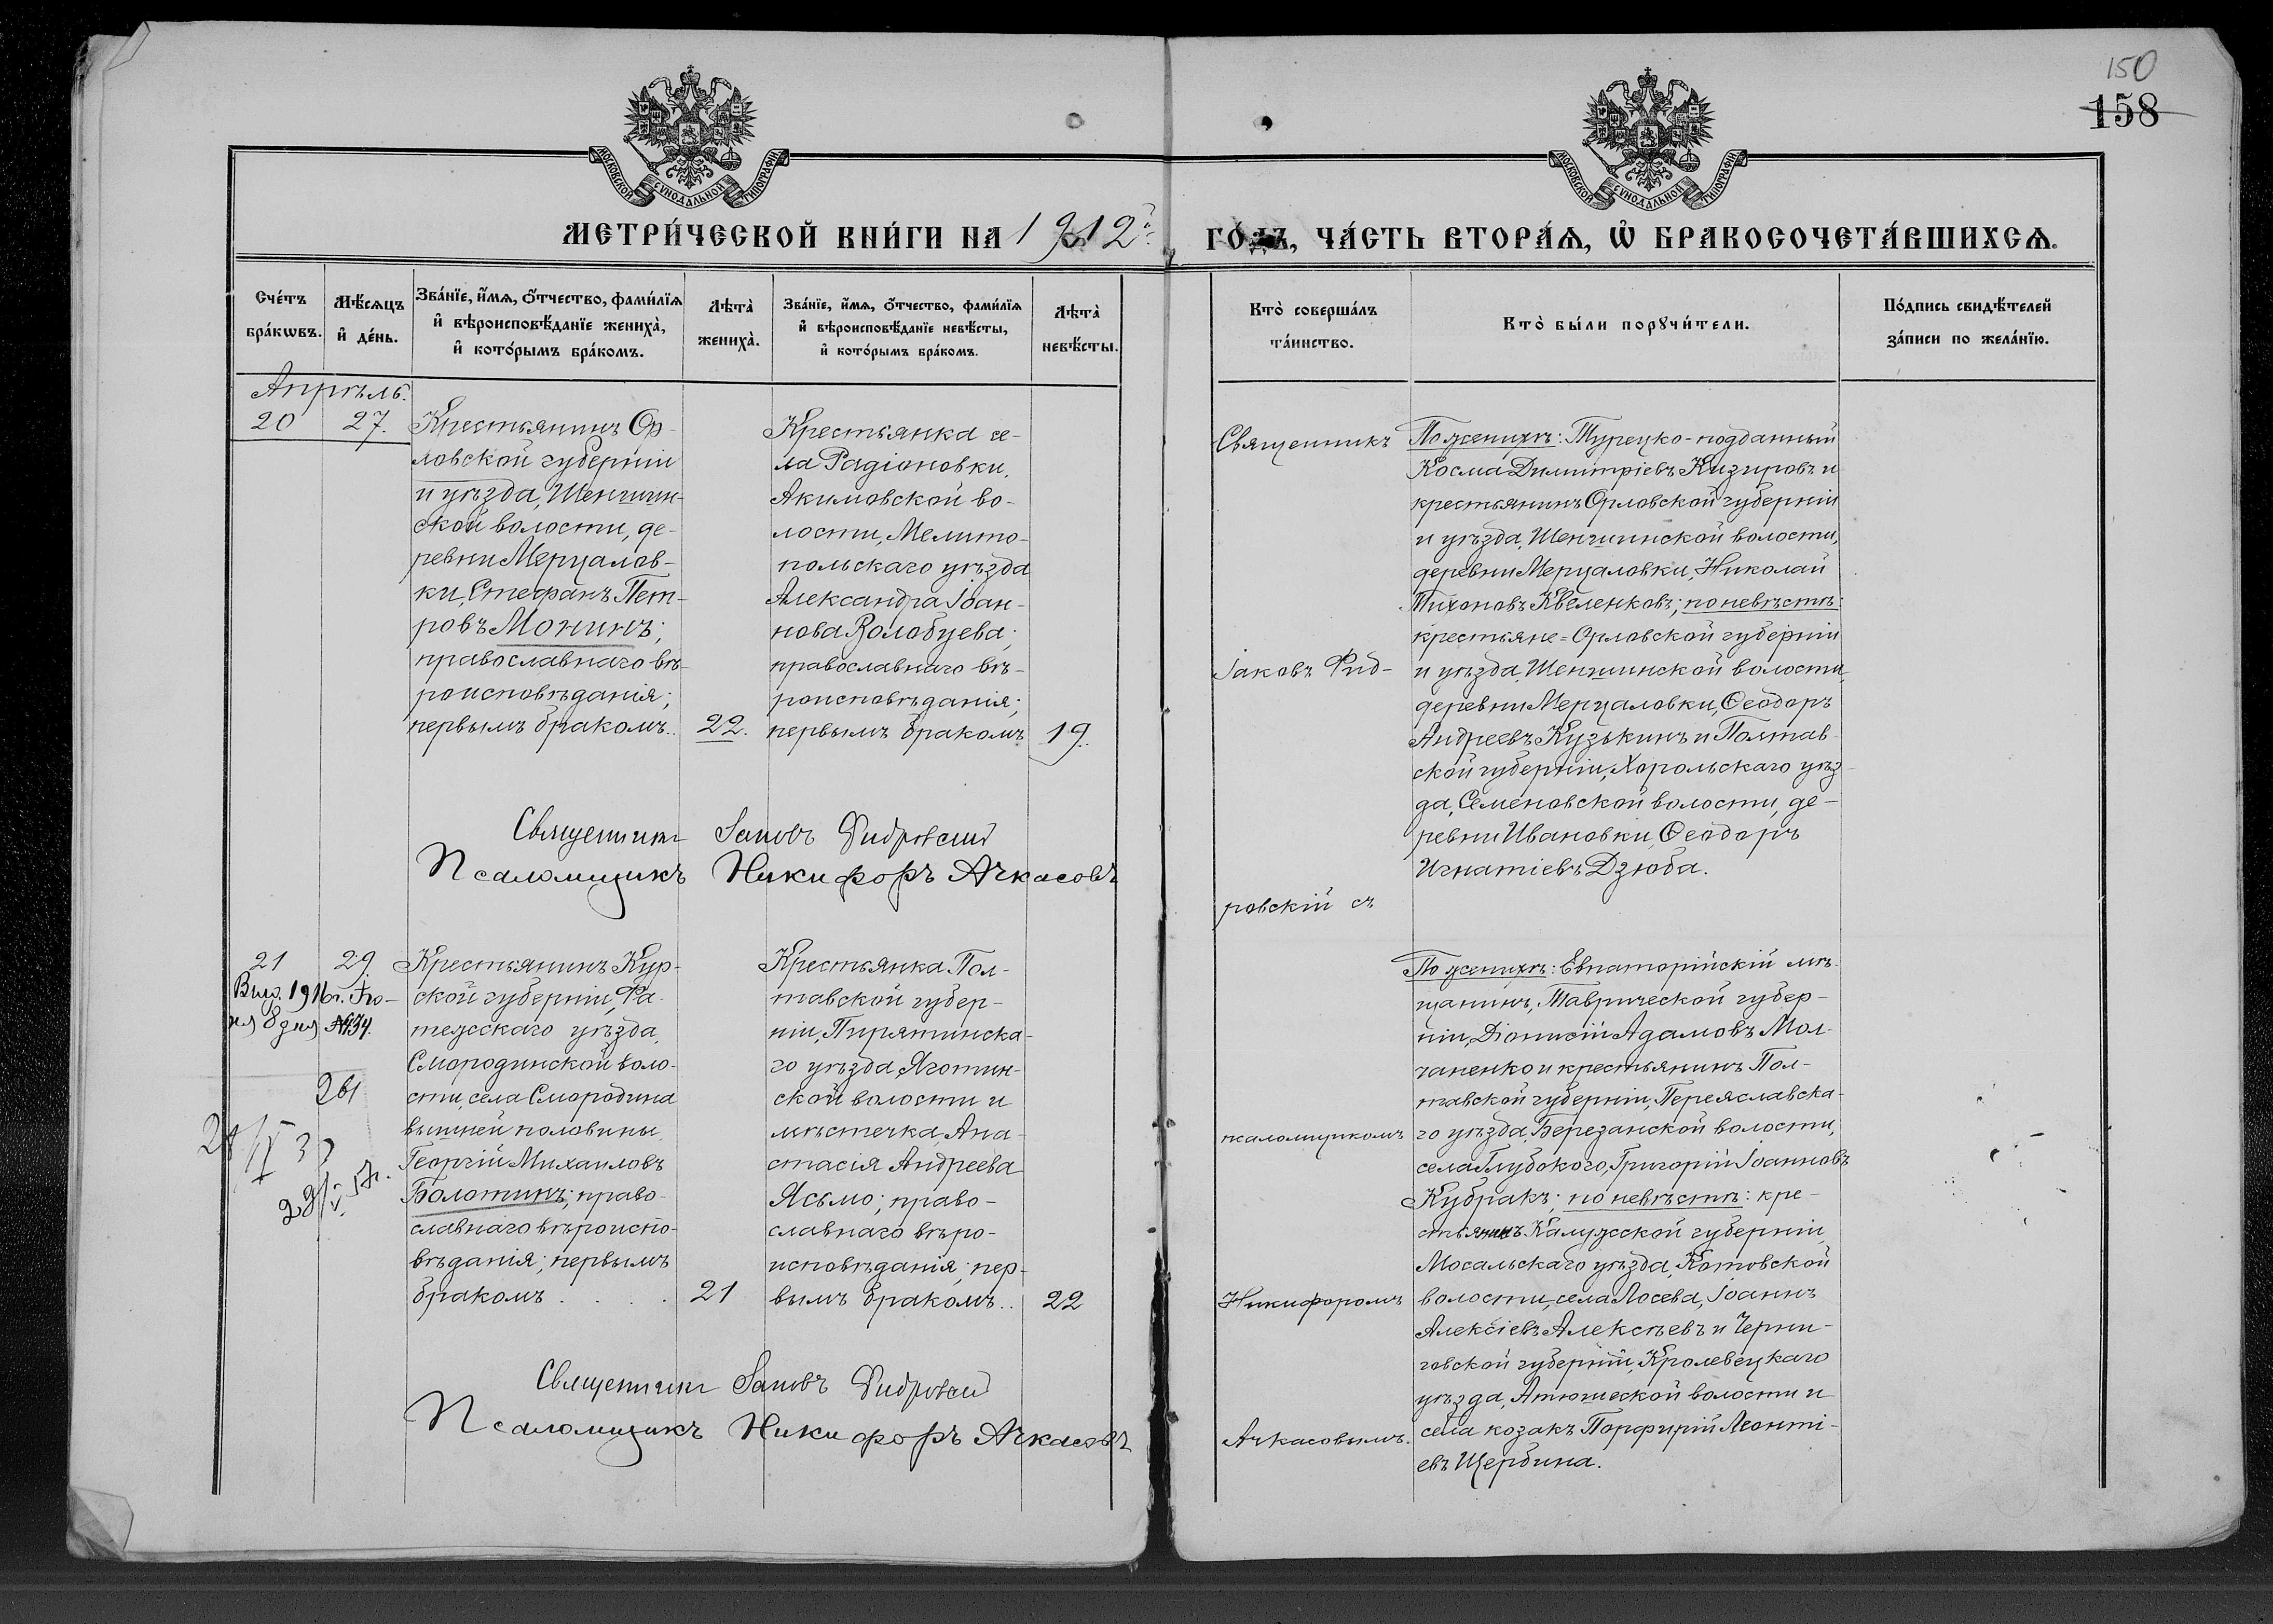 150
158
МОСКОВСКОЙ СѴНОДАЛЬНОЙ ТИПОГРАФІИ
МОСКОВСКОЙ СѴНОДАЛЬНОЙ ТИПОГРАФІИ
МЕТРИ́ЧЕСКОЙ КНИ́ГИ НА 1912 й
ГО́ДЪ, ЧА́СТЬ ВТОРА́Я, Ѡ БРАКОСОЧЕТА́ВШИХСЯ.
Сче́тъ бра́кѡвъ.
Мѣ́сяцъ и҆ де́нь.
Зва́нїе, и҆́мя, ѻ҆́тчество, фами́лїя
и҆ вѣроисповѣ́данїе жениха̀,
и҆ кото́рымъ бра́комъ.
Лѣта̀ жениха̀.
Зва́нїе, и҆́мя, ѻ҆́тчество, фами́лїя
и҆ вѣроисповѣ́данїе невѣ́сты,
и҆ кото́рымъ бра́комъ.
Лѣта̀ невѣ́сты.
Кто̀ соверша́лъ та́инство.
Кто̀ бы́ли порꙋчи́тели.
По́дпись свидѣ́телей за́писи по жела́нїю.
Апрѣль.
20
27.
Крестьянинъ Ор-
ловской губерніи
и уѣзда, Шеншин-
ской волости, де-
ревни Мерцалов-
ки, Стефанъ Пет-
ровъ Монинъ;
православнаго вѣ-
роисповѣданія;
первымъ бракомъ..
22.
Крестьянка се-
ла Радіоновки,
Акимовской во-
лости, Мелито-
польскаго уѣзда
Александра Іоан-
нова Волобуева;
православнаго вѣ-
роисповѣданія;
первымъ бракомъ
19.
Священникъ
Іаковъ Фид-
ровскій съ
псаломщикомъ
Никифоромъ
Ачкасовымъ.
По женихѣ: Турецко-подданный
Косма Димитріевъ Кизировъ и
крестьянинъ Орловской губерніи
и уѣзда, Шеншинской волости,
деревни Мерцаловки, Николай
Тихоновъ Квеленковъ; по невѣстѣ:
крестьяне = Орловской губерніи
и уѣзда, Шеншинской волости,
деревни Мерцаловки, Ѳеодоръ
Андреевъ Кузькинъ и Полтав-
ской губерніи, Хорольскаго уѣз-
да, Семеновской волости, де-
ревни Ивановки, Ѳеодоръ
Игнатіевъ Дзюба.
Священникъ Іаковъ Фидровскій
Псаломщикъ Никифоръ Ачкасовъ
21
29.
Выд. 1916 г. Iю-
ня 8 дня №434.
261
Крестьянинъ Кур-
ской губерніи, Фа-
тежскаго уѣзда,
Смородинской воло-
сти, села Смородина
вышней половины,
Георгій Михаиловъ
Болотинъ; право-
славнаго вѣроиспо-
вѣданія; первымъ
бракомъ . . . .
21
Крестьянка Пол-
тавской губер-
ніи, Пирятинска-
го уѣзда, Яготин-
ской волости и
мѣстечка, Ана-
стасія Андреева
Ясьмо; право-
славнаго вѣро-
исповѣданія; пер-
вымъ бракомъ..
22
По женихѣ: Евпаторійскій мѣ-
щанинъ, Таврической губер-
ніи, Діонисій Адамовъ Мол-
чаненко и крестьянинъ Пол-
тавской губерніи, Переяславска-
го уѣзда, Березанской волости,
села Глубокого, Григорій Іоанновъ
Кубракъ; по невѣстѣ: кре-
стьянинъ Калужской губерніи,
Мосальскаго уѣзда, Котовской
волости, села Лосева, Іоаннъ
Алексіевъ Алексѣевъ и Черни-
говской губерніи, Кролевецкаго
уѣзда, Атюшской волости и
села козакъ Порфирій Леонті-
евъ Щербина.
Священникъ Іаковъ Фидровскій
Псаломщикъ Никифоръ Ачкасовъ